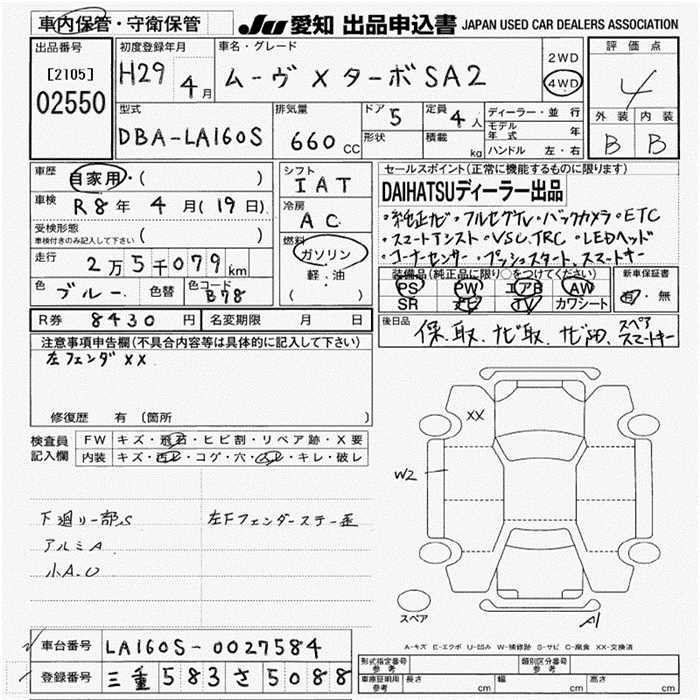 車内保管・守衛保管
JU 愛知 出品申込書 JAPAN USED CAR DEALERS ASSOCIATION
出品番号
[2105]
02550
初度登録年月
H29 4月
車名・グレード
ムーヴ X ターボ SA2
2WD
4WD
評価点
4
外装 内装
B B
型式
DBA-LA160S
排気量
660 CC
ドア 5
形状
定員 4人
積載 kg
ディーラー・並行
モデル年式 年
ハンドル 左・右
車歴
自家用・( )
車検
R8年 4月(19日)
受検形態
車検付きのみ記入して下さい ( )
走行
2万5千079km
色 ブルー 色替 色コード B78
シフト
IAT
冷房
AC
燃料
ガソリン
軽・油
( )
セールスポイント(正常に機能するものに限ります)
DAIHATSUディーラー出品
・純正ナビ・フルセグTV・バックカメラ・ETC
・スマートアシスト・VSC,TRC・LEDヘッド
・コーナーセンサー・プッシュスタート、スマートキー
装備品(純正品に限り○をつけてください)
PS PW エアB AW
SR ナビ TV カワシート
新車保証書
有・無
R券 8430円 名変期限 月 日
後日品
保、取、ナビ取、ナビ
スペアスマートキー
注意事項申告欄(不具合内容等は具体的に記入して下さい)
左フェンダ XX
修復歴 有 (箇所
検査員記入欄
FW キズ・飛石・ヒビ割・リペア跡・X要
内装 キズ・汚レ・コゲ・穴・スレ・キレ・破レ
下廻リ一部S
アルミA
小A.U
左Fフェンダーステー歪
XX
W2
スペア
A1
A-キズ E-エクボ U-凹み W-補修跡 S-サビ C-腐食 XX-交換済
車台番号 LA160S-0027584
登録番号 三重583さ5088
型式指定番号 参考
類別区分番号 参考
車庫証明用 参考 長さ cm 幅 cm 高さ cm